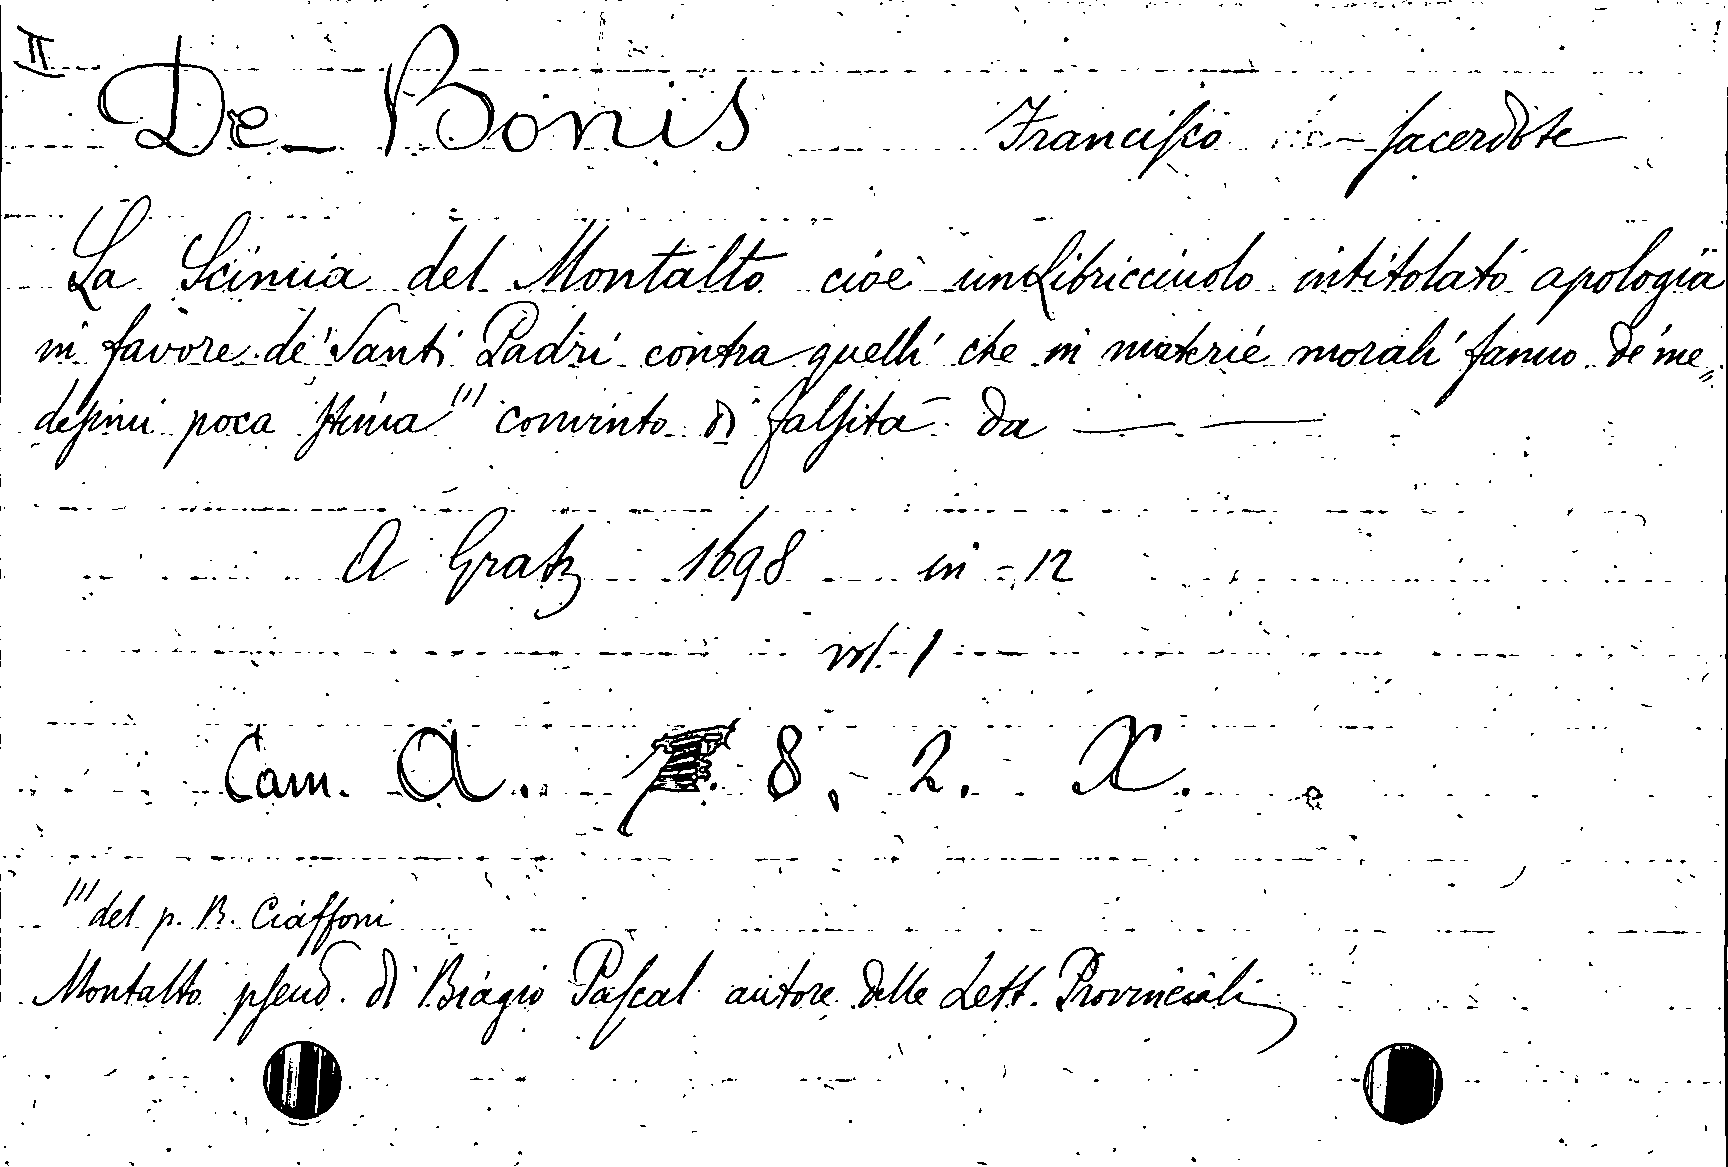 II
De Bonis Francesco - sacerdote
La Scimia del Montalto cioè un Libricciuolo intitolato apologia
in favore de' Santi Padri contra quelli che in materie morali fanno de' me„
desimi poca stima (1) convinto di falsità da — —
A Gratz 1698 in - 12
vol. 1
Cam. A. 8, 2. X.
(1) del p. B. Ciaffoni
Montalto pseud. di Biagio Pascal autore delle Lett. Provinciali